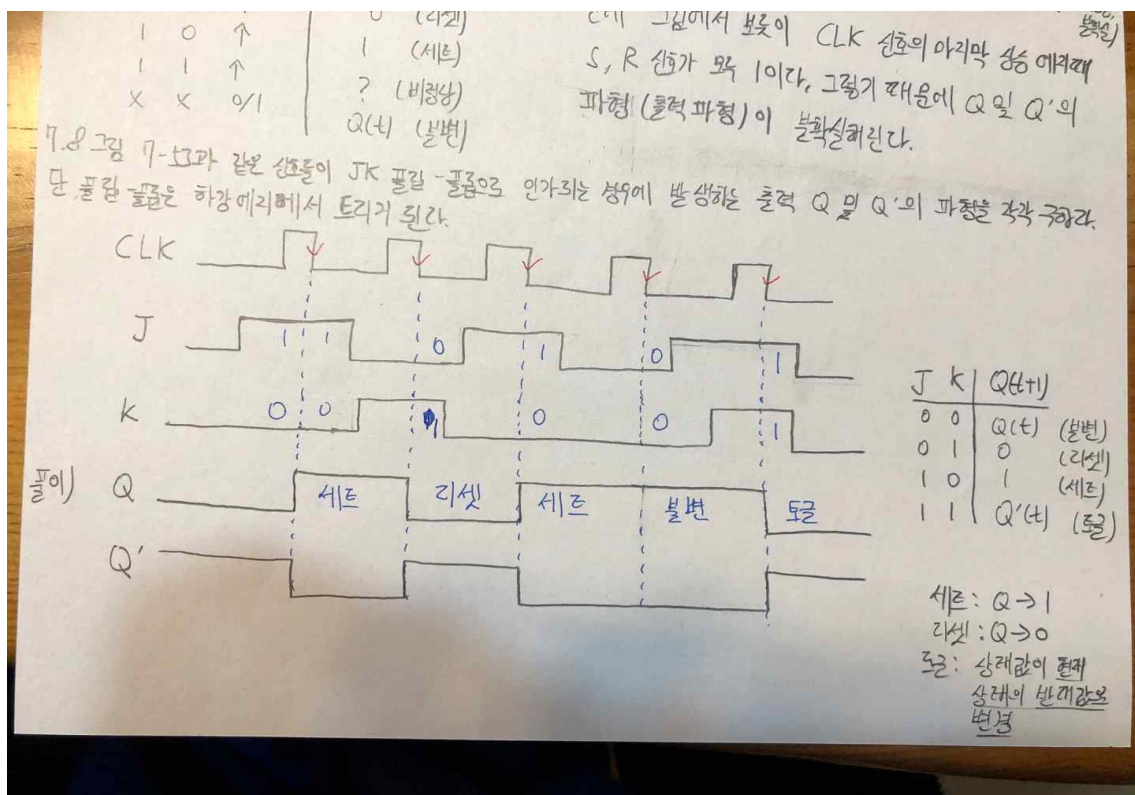 0 (리셋)
1 0 ↑ 1 (세트)
1 1 ↑ ? (비정상)
X X 0/1 Q(t) (불변)
그림에서 보듯이 CLK 신호의 마지막 상승 에지때
S, R 신호가 모두 1이다, 그렇기 때문에 Q 및 Q'의
파형 (출력 파형)이 불확실해진다.
7.8 그림 7-53과 같은 신호들이 JK 플립-플롭으로 인가되는 경우에 발생하는 출력 Q 및 Q'의 파형을 각각 구하라.
단, 플립-플롭은 하강에지에서 트리거 된다.
CLK
J 1 1 0 1 0 1
K 0 0 1 0 0 1
풀이) Q 세트 리셋 세트 불변 토글
Q'
J K Q(t+1)
0 0 Q(t) (불변)
0 1 0 (리셋)
1 0 1 (세트)
1 1 Q'(t) (토글)
세트: Q → 1
리셋: Q → 0
토글: 상태값이 현재
상태의 반대값으로
변경